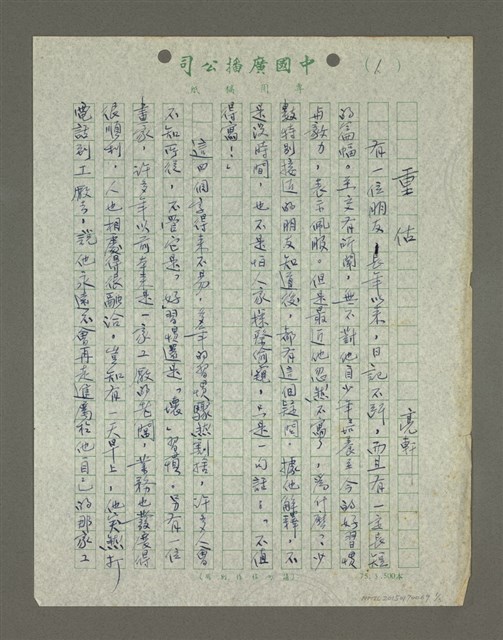 中國廣播公司
專用稿紙
(1.)
重估
亮軒
有一位朋友,長年以來,日記不斷,而且有一定長短
的篇幅。至交有所聞,無不對他自少年養至今的好習慣
与毅力,表示佩服。但是最近他忽然不寫了,為什麼?少
數特別接近的朋友知道後,都有這個疑問,據他解釋,不
是沒時間,也不是怕人家探發偷窺,只是一句話:「不值
得寫!」
這四個字得來不易,多年的習慣驟然割捨,許多人會
不知所從,不管它是「好」習慣還是「壞」習慣。另有一位
畫家,許多年以前本來是一家工廠的老闆,業務也發展得
很順利,人也相處得很融洽,豈知有一天早上,他突然打
電話到工廠去,說他永遠不會再走進屬於他自己的那家工